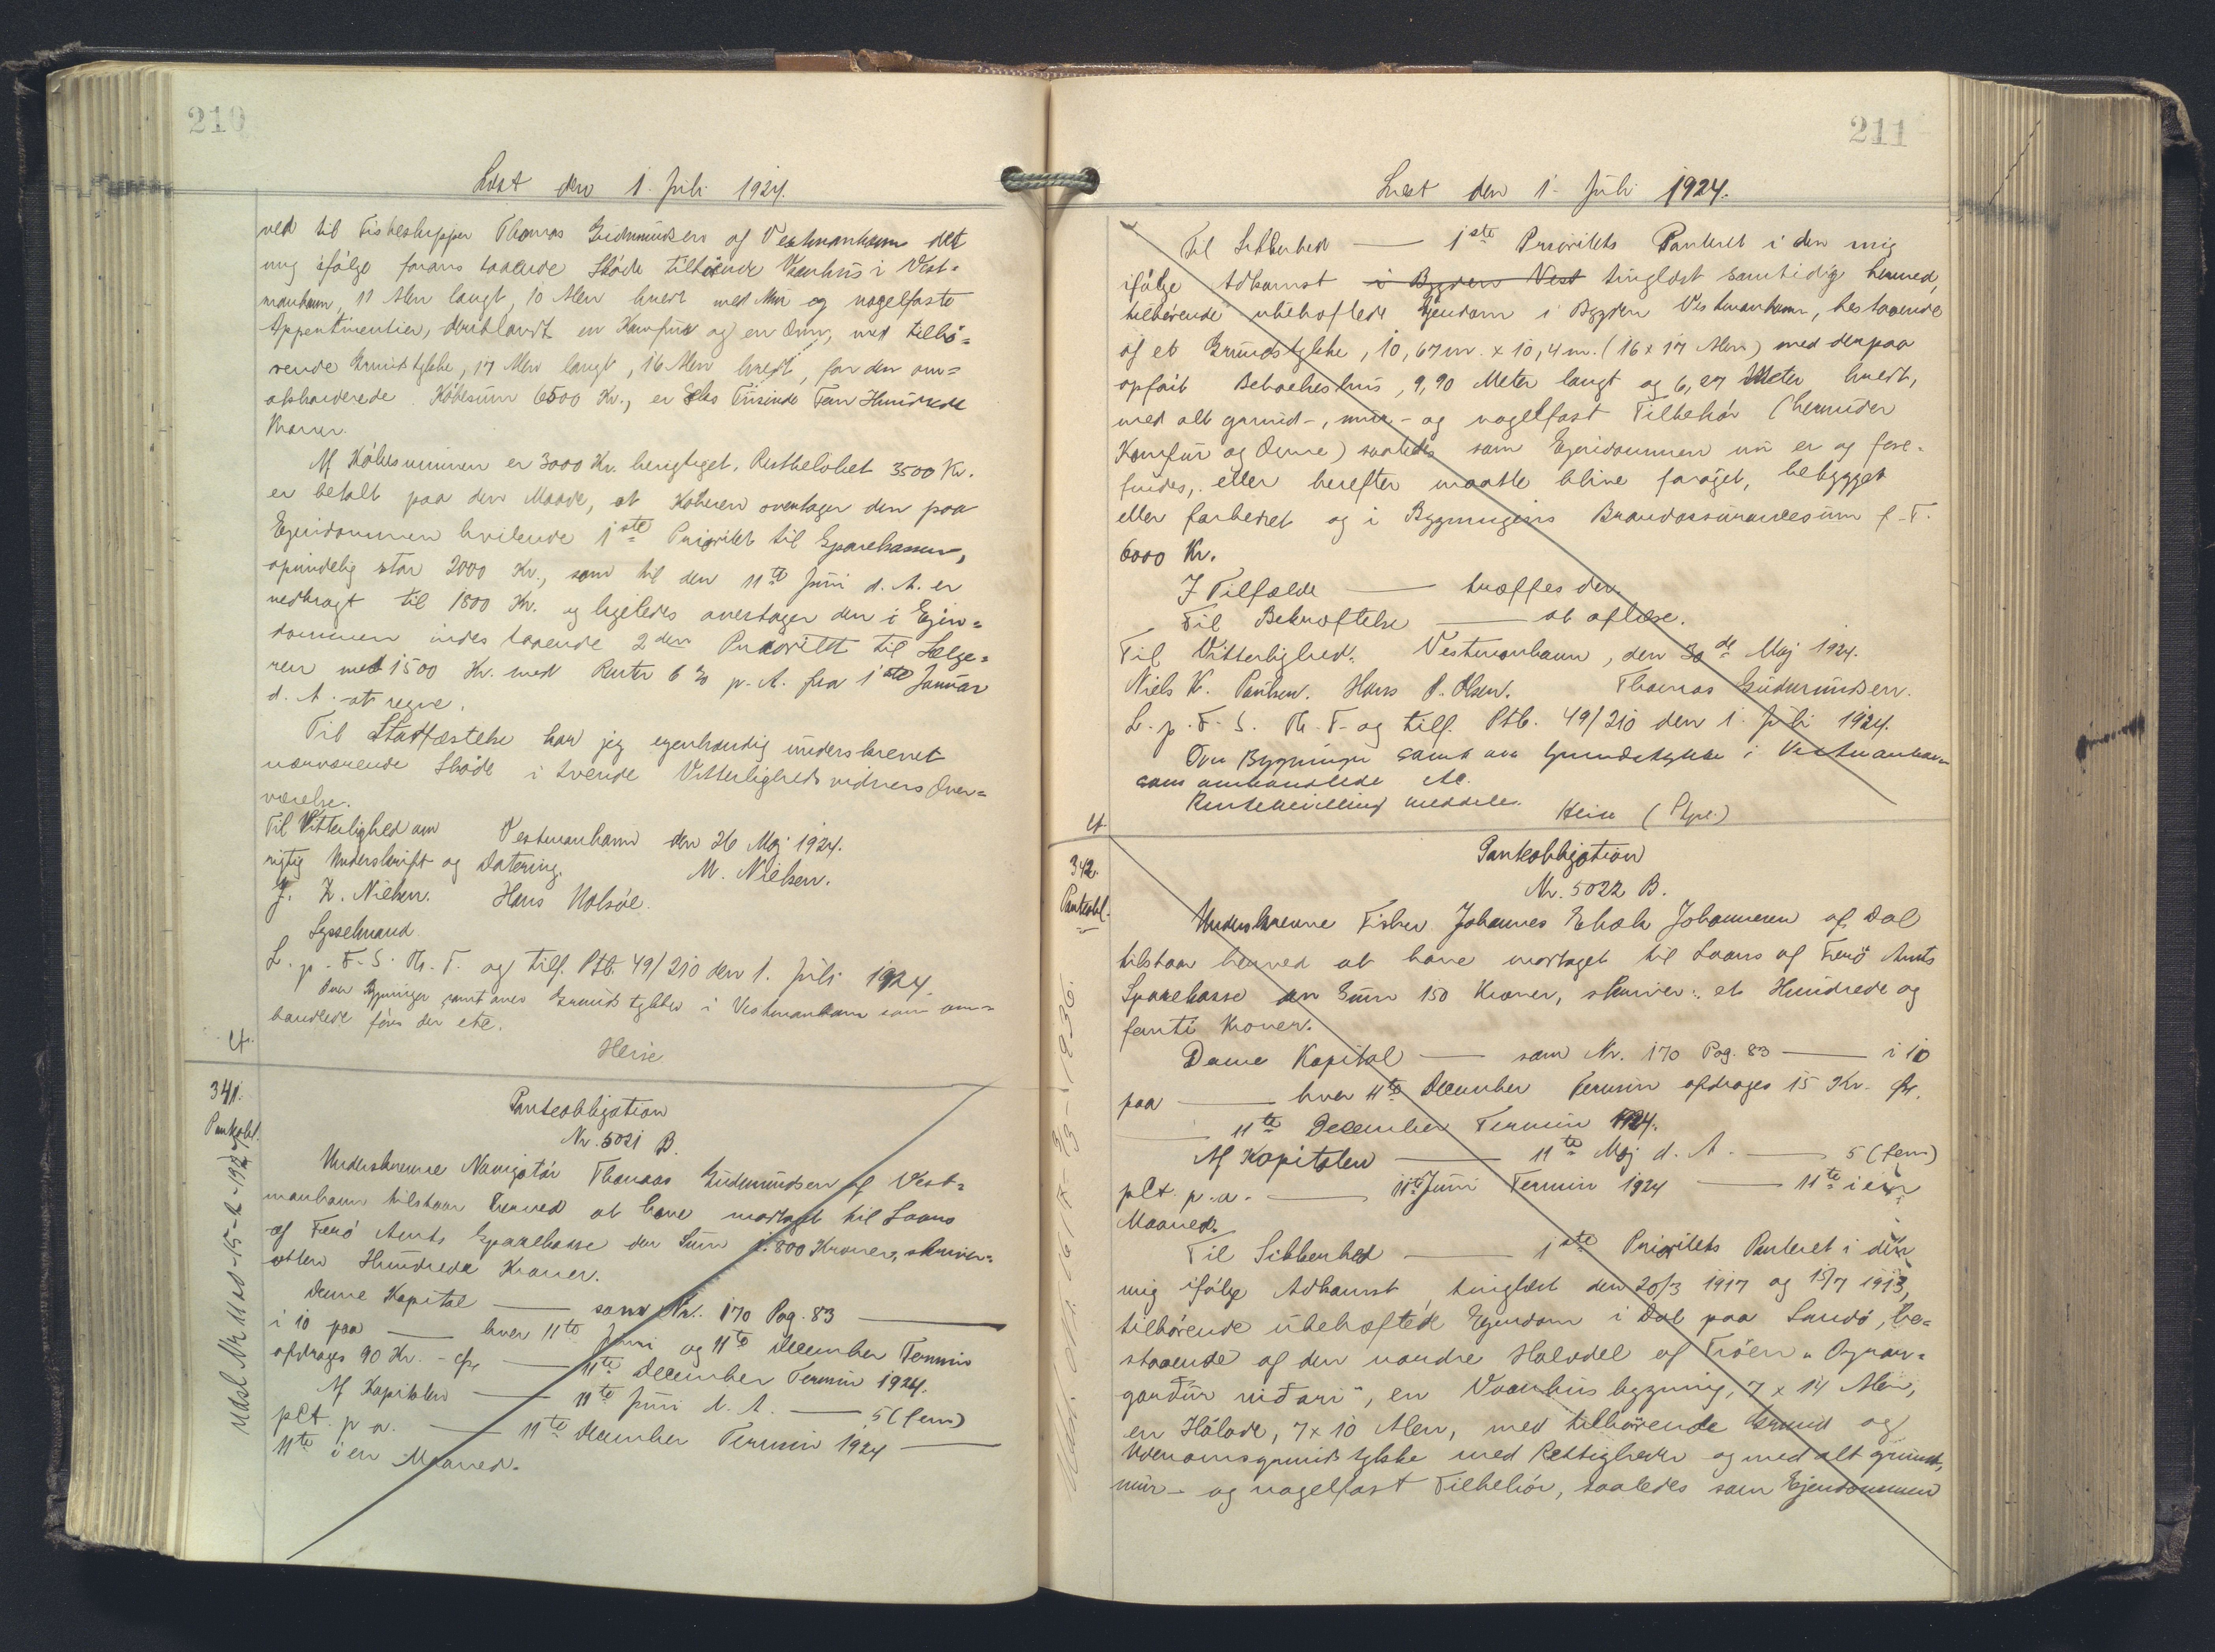 210
Læst den 1. Juli 1924.
ved til Fiskeskipper Thomas Gudmundsen af Vestmanhavn det
mig ifølge forans taaende Skøde tilhørende Vaanhus i Vest=
manhavn, 11 Alen langt, 10 Alen bredt med Mur og nagelfaste
Appertinentier, deriblandt en Komfur og en Ovn, med tilhø=
rende Grundstykke, 17 Alen langt, 16 Alen bredt, for den om=
akkorderede Købesum 6500 Kr., er Seks Tusinde Fem Hundrede
Kroner.
Af Købesummen er 3000 Kr. berigtiget. Restbeløbet 3500 Kr.
er betalt paa den Maade, at Køberen overtager den paa
Ejendommen hvilende 1ste Prioritet til Sparekassen,
oprindelig stor 2000 Kr., som til den 11te Juni d. A. er
nedbragt til 1800 Kr. og ligeledes overtager den i Ejen=
dommen indestaaende 2den Prioritet til Sælge=
ren med 1500 Kr. med Rente 6 % p. A. fra 1ste Januar
d. A. at regne.
Til Stadfæstelse har jeg egenhændig underskrevet
nærværende Skøde i tvende Vitterligheds vidners Over=
værelse.
Til Vitterlighed om Vestmanhavn den 26 Maj 1924.
rigtig Underskrift og Datering. M. Nielsen.
J. Z. Nielsen. Hans Nolsøe.
Sysselmand.
L. p. F. S. Th. T. og tilf. Ptb. 49/210 den 1. Juli 1924.
Over Bygninger samt over Grundstykke i Vestmanhavn som om=
handlede føres der etc.
Heise
341.
Pantobl.
Udsl. 15-2-1927
Panteobligation
Nr. 5021 B.
Underskrevne Navigatør Thomas Gudmundsen af Vest=
manhavn tilstaar herved at have modtaget til Laans
af Færø Amts Sparekasse den Sum 1800 Kroner, skriver:
atten Hundrede Kroner.
Denne Kapital — som Nr. 170 Pag. 83 —
i 10 paa — hver 11te Juni og 11te December Termin
afdrages 90 Kr. — 11te December Termin 1924.
Af Kapitalen — 11te Juni d. A. — 5 (fem)
pCt. p. a. — 11te December Termin 1924 —
11te i en Maaned.
211
Læst den 1. Juli 1924.
Til Sikkerhed — 1ste Prioritets Panteret i den mig
ifølge Adkomst i Bygden Vest tinglæst samtidig hermed,
tilhørende ubehæftede Ejendom i Bygden Vestmanhavn, bestaaende
af et Grundstykke, 10,67 m. x 10,4 m. (16 x 17 Alen) med derpaa
opført Beboelseshus, 9,90 Meter langt og 6,27 Meter bredt,
med alt grund-, mur- og nagelfast Tilbehør (herunder
Komfur og Ovne) saaledes som Ejendommen nu er og fore=
findes, eller herefter maatte blive forøget, bebygget
eller forbedret og i Bygningens Brandassurancesum f. T.
6000 Kr.
I Tilfælde — træffes der.
Til Bekræftelse — at aflæse.
Til Vitterlighed: Vestmanhavn, den 30de Maj 1924.
Niels K. Poulsen. Hans P. Olsen. Thomas Gudmundsen.
L. p. F. S. Th. T. og tilf. Ptb. 49/210 den 1. Juli 1924.
Over Bygninger samt over Grundstykke i Vestmanhavn
som omhandlede etc.
Rentebevilling meddeles. Heise
342.
Pantobl.
Panteobligation
Nr. 5022 B.
Underskrevne Fisker Johannes Ehak Johannesen af Dal
tilstaar herved at have modtaget til Laans af Færø Amts
Sparekasse en Sum 150 Kroner, skriver: et Hundrede og
femti Kroner.
Denne Kapital — som Nr. 170 Pag. 83 — i 10
paa — hver 11te December Termin afdrages 15 Kr.
— 11te December Termin 1924.
Af Kapitalen — 11te Maj d. A. — 5 (fem)
pCt. p. a. — 11te Juni Termin 1924 — 11te i en
Maaned.
Til Sikkerhed — 1ste Prioritets Panteret i den
mig ifølge Adkomst, tinglæst den 20/3 1917 og 15/7 1913,
tilhørende ubehæftede Ejendom i Dal paa Sandø, be=
staaende af den nordre Halvdel af Trøen
garður niðari", en Vaanhusbygning, 7 x 14 Alen,
en Hølade, 7 x 10 Alen, med tilhørende Grund og
Udenomsgrundstykke med Rettigheder og med alt grund,
mur- og nagelfast Tilbehør, saaledes som Ejendommen